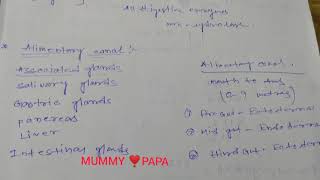 All Digestive enzymes
are - hydrolase.
* Alimentary canal :-
Associated glands
Salivary glands
Gastric glands
pancreas
Liver
Intestinal glands
Alimentary canal.
mouth to Anus
(8-9 metres)
① Foregut - Ectodermal
② Mid gut - Endodermal
③ Hind Gut - Ectoderm
MUMMY ❤️PAPA